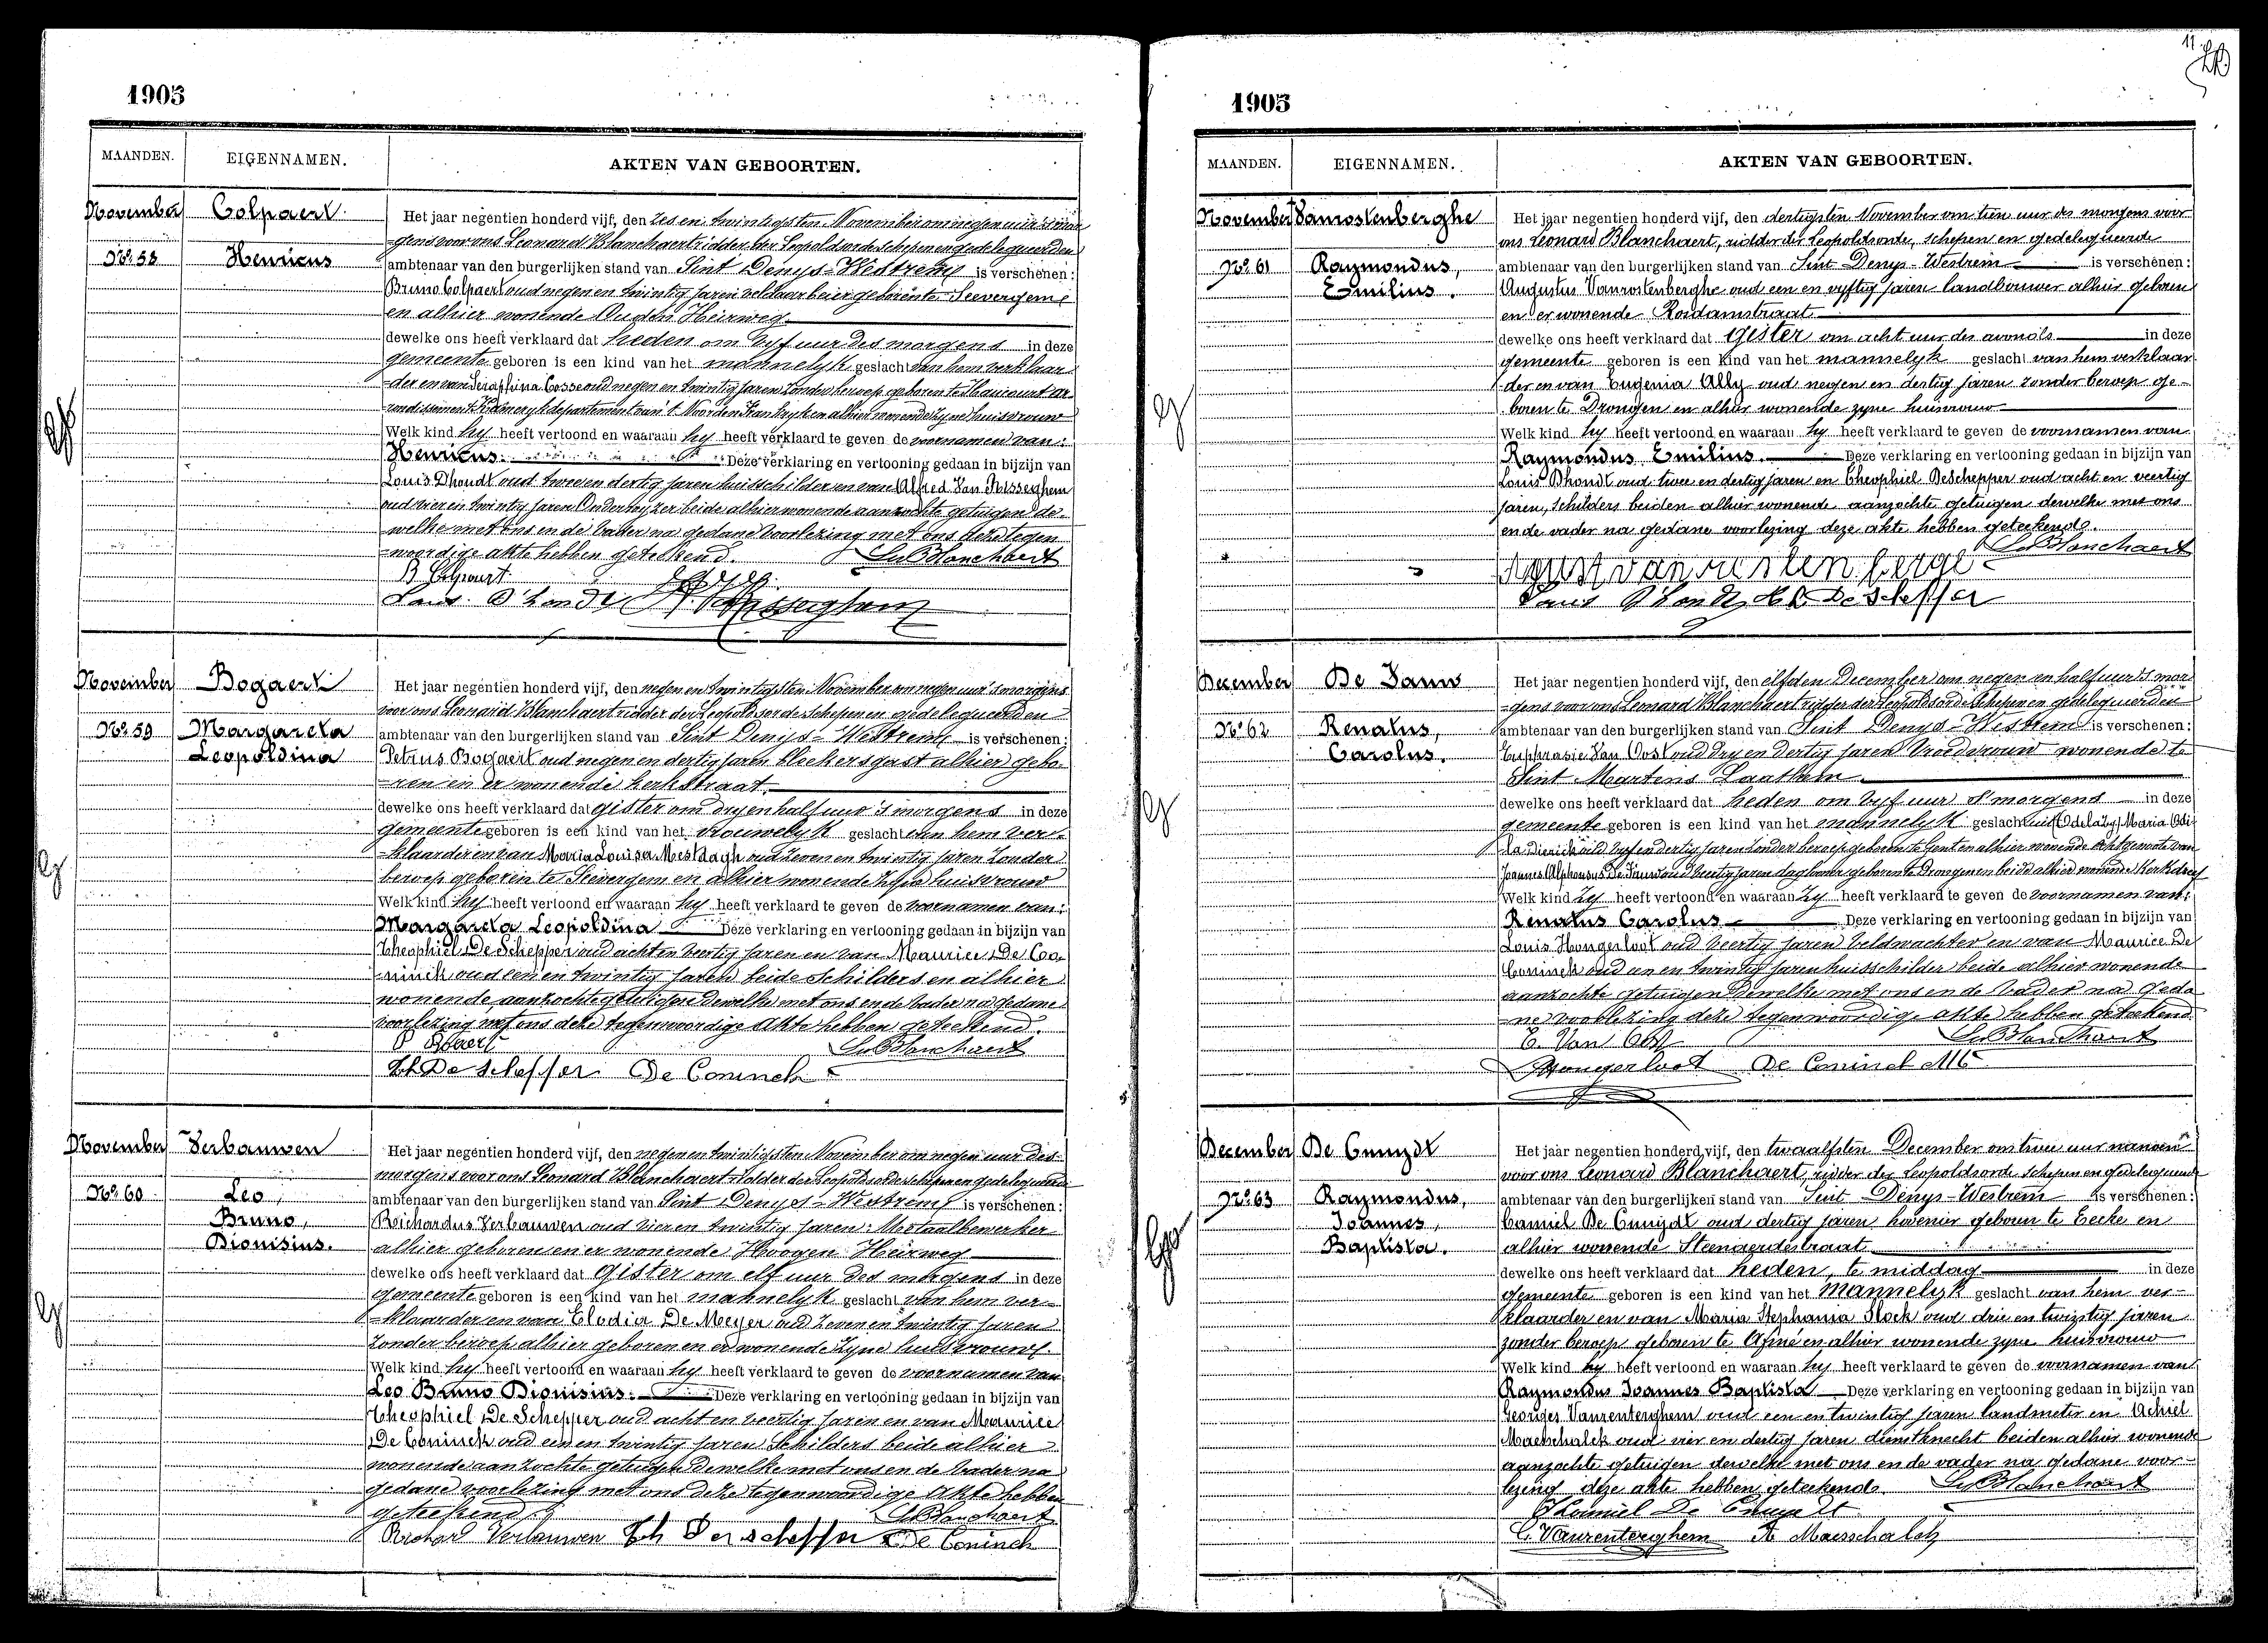 1905
MAANDEN. EIGENNAMEN. AKTEN VAN GEBOORTEN.
November Colpaert Het jaar negentien honderd vijf, den zes en twintigsten November om negen uur 's mor-
-gens voor ons Leonard Blanchaert ridder der Leopoldsorde schepen en gedelegueerden
No. 58 Henricus ambtenaar van den burgerlijken stand van Sint Denys-Westrem is verschenen:
Bruno Colpaert oud negen en twintig jaren veldaarbeier geboren te Seevergem
en alhier wonende Ouden Heirweg
dewelke ons heeft verklaard dat heden om vyf uur des morgens in deze
gemeente geboren is een kind van het mannelyk geslacht van hem verklaar-
-der en van Seraphina Cosse oud negen en twintig jaren zonder beroep geboren te
departement van 't Noorden Frankryk en alhier wonende zyne huisvrouw
Welk kind hy heeft vertoond en waaraan hy heeft verklaard te geven de voornamen van:
Henricus. Deze verklaring en vertooning gedaan in bijzijn van
Louis Dhondt oud twee en dertig jaren huisschilder en van Alfred Van Risseghem
oud vier en twintig jaren Onderwyzer beide alhier wonende aanzochte getuigen de-
-welke met ons en de vader na gedane voorlezing met ons deze tegen
-woordige akte hebben geteekend. Le Blanchaert
B Colpaert
Louis D'hondt A. Van Risseghem
November Bogaert Het jaar negentien honderd vijf, den negen en twintigsten November om negen uur 's morgens
voor ons Leonard Blanchaert ridder der Leopoldsorde schepen en gedelegueerden
No. 59 Margareta ambtenaar van den burgerlijken stand van Sint Denys-Westrem is verschenen:
Leopoldina Petrus Bogaert oud negen en dertig jaren bleekersgast alhier gebo-
-ren en er wonende kerkstraat.
dewelke ons heeft verklaard dat gister om dry en half uur 's morgens in deze
gemeente geboren is een kind van het vrouwelyk geslacht van hem ver-
-klaarder en van Maria Louisa Mestdagh oud zeven en twintig jaren zonder
beroep geboren te Seevergem en alhier wonende zyne huisvrouw
Welk kind hy heeft vertoond en waaraan hy heeft verklaard te geven de voornamen van:
Margareta Leopoldina Deze verklaring en vertooning gedaan in bijzijn van
Theophiel De Schepper oud acht en veertig jaren en van Maurice De Co-
-ninck oud een en twintig jaren beide schilders en alhier
wonende, aanzochte getuigen dewelke met ons en de vader na gedane
voorlezing met ons deze tegenwoordige akte hebben geteekend.
P Bogaert Le Blanchaert
Th De Schepper De Coninck
November Verbauwen Het jaar negentien honderd vijf, den negen en twintigsten November om negen uur des
morgens voor ons Leonard Blanchaert ridder der Leopoldsorde schepen en gedelegueerde
No. 60 Leo, ambtenaar van den burgerlijken stand van Sint Denys-Westrem is verschenen:
Bruno, Richardus Verbauwen oud vier en twintig jaren Metaalbewerker
Dionisius. alhier geboren en er wonende Hoogen Heirweg
dewelke ons heeft verklaard dat Gister om elf uur des morgens in deze
gemeente geboren is een kind van het mannelyk geslacht van hem ver-
-klaarder en van Elodia De Meyer oud zeven en twintig jaren
zonder beroep alhier geboren en er wonende zyne huisvrouw.
Welk kind hy heeft vertoond en waaraan hy heeft verklaard te geven de voornamen van
Leo Bruno Dionisius. Deze verklaring en vertooning gedaan in bijzijn van
Theophiel De Schepper oud acht en veertig jaren en van Maurice
De Coninck oud een en twintig jaren schilders beide alhier
wonende aanzochte getuigen dewelke met ons en de vader na
gedane voorlezing met ons deze tegenwoordige akte hebben
geteekend. Le Blanchaert
Richard Verbauwen Th De Schepper De Coninck
11
1905
MAANDEN. EIGENNAMEN. AKTEN VAN GEBOORTEN.
November Vanrostenberghe Het jaar negentien honderd vijf, den dertigsten November om tien uur des morgens voor
ons Leonard Blanchaert, ridder der Leopoldsorde, schepen en gedelegueerde
No. 61 Raymondus, ambtenaar van den burgerlijken stand van Sint-Denys-Westrem is verschenen:
Emilius. Augustus Vanrostenberghe oud een en vyftig jaren landbouwer alhier geboren
en er wonende Rosdamstraat
dewelke ons heeft verklaard dat Gister om acht uur des avonds in deze
gemeente geboren is een kind van het mannelyk geslacht van hem verklaar-
-der en van Eugenia Ally oud negen en dertig jaren zonder beroep ge-
boren te Drongen en alhier wonende zyne huisvrouw
Welk kind hy heeft vertoond en waaraan hy heeft verklaard te geven de voornamen van
Raymondus Emilius. Deze verklaring en vertooning gedaan in bijzijn van
Louis Dhondt oud twee en dertig jaren en Theophiel Deschepper oud acht en veertig
jaren, schilders beiden alhier wonende aanzochte getuigen dewelke met ons
en de vader na gedane voorlezing deze akte hebben geteekend.
Le Blanchaert
Louis D'hondt De Schepper
December De Pauw Het jaar negentien honderd vijf, den elfden December om negen en half uur 's mor
-gens voor ons Leonard Blanchaert ridder der Leopoldsorde schepen en gedelegueerden
No. 62 Renatus, ambtenaar van den burgerlijken stand van Sint Denys-Westrem is verschenen:
Carolus. Euphrasie Van Oost oud dry en dertig jaren Vroedvrouw wonende te
Sint Martens Laathem
dewelke ons heeft verklaard dat heden om vyf uur 's morgens in deze
gemeente geboren is een kind van het mannelyk geslacht uit Maria Odi-
la Dierick oud vyf en dertig jaren zonder beroep geboren te Gent en alhier wonende echtgenoote van
Joannes Alphonsus De Pauw oud veertig jaren daglooner geboren te Drongen en beide alhier wonende Kerkdreef
Welk kind zy heeft vertoond en waaraan zy heeft verklaard te geven de voornamen van:
Renatus Carolus Deze verklaring en vertooning gedaan in bijzijn van
Louis Hongerloot oud veertig jaren veldwachter en van Maurice De
Coninck oud een en twintig jaren huisschilder beide alhier wonende
aanzochte getuigen dewelke met ons en de vader na geda
-ne voorlezing deze tegenwoordige akte hebben geteekend
E. Van Oost Le Blanchaert
Hongerloot De Coninck Mce
December De Cnuydt Het jaar negentien honderd vijf, den twaalfsten December om twee uur namiddag
voor ons Leonard Blanchaert, ridder der Leopoldsorde schepen en gedelegueerde
No. 63 Raymondus, ambtenaar van den burgerlijken stand van Sint-Denys-Westrem is verschenen:
Joannes, Camiel De Cnuydt oud dertig jaren hovenier geboren te Eecke en
Baptista. alhier wonende Steenaerdestraat
dewelke ons heeft verklaard dat heden, te middag in deze
gemeente geboren is een kind van het mannelyk geslacht van hem ver-
klaarder en van Maria Stephania Slock oud drie en twintig jaren
zonder beroep geboren te Afsné en alhier wonende zyne huisvrouw
Welk kind hy heeft vertoond en waaraan hy heeft verklaard te geven de voornamen van
Raymondus Joannes Baptista Deze verklaring en vertooning gedaan in bijzijn van
Georges Vanrenterghem oud een en twintig jaren landmeter en Achiel
Maesschalck oud vier en dertig jaren dienstknecht beiden alhier wonende
aanzochte getuigen dewelke met ons en de vader na gedane voor-
lezing deze akte hebben geteekend. Le Blanchaert
Kamiel De Cnuydt
G. Vanrenterghem A Maesschalck